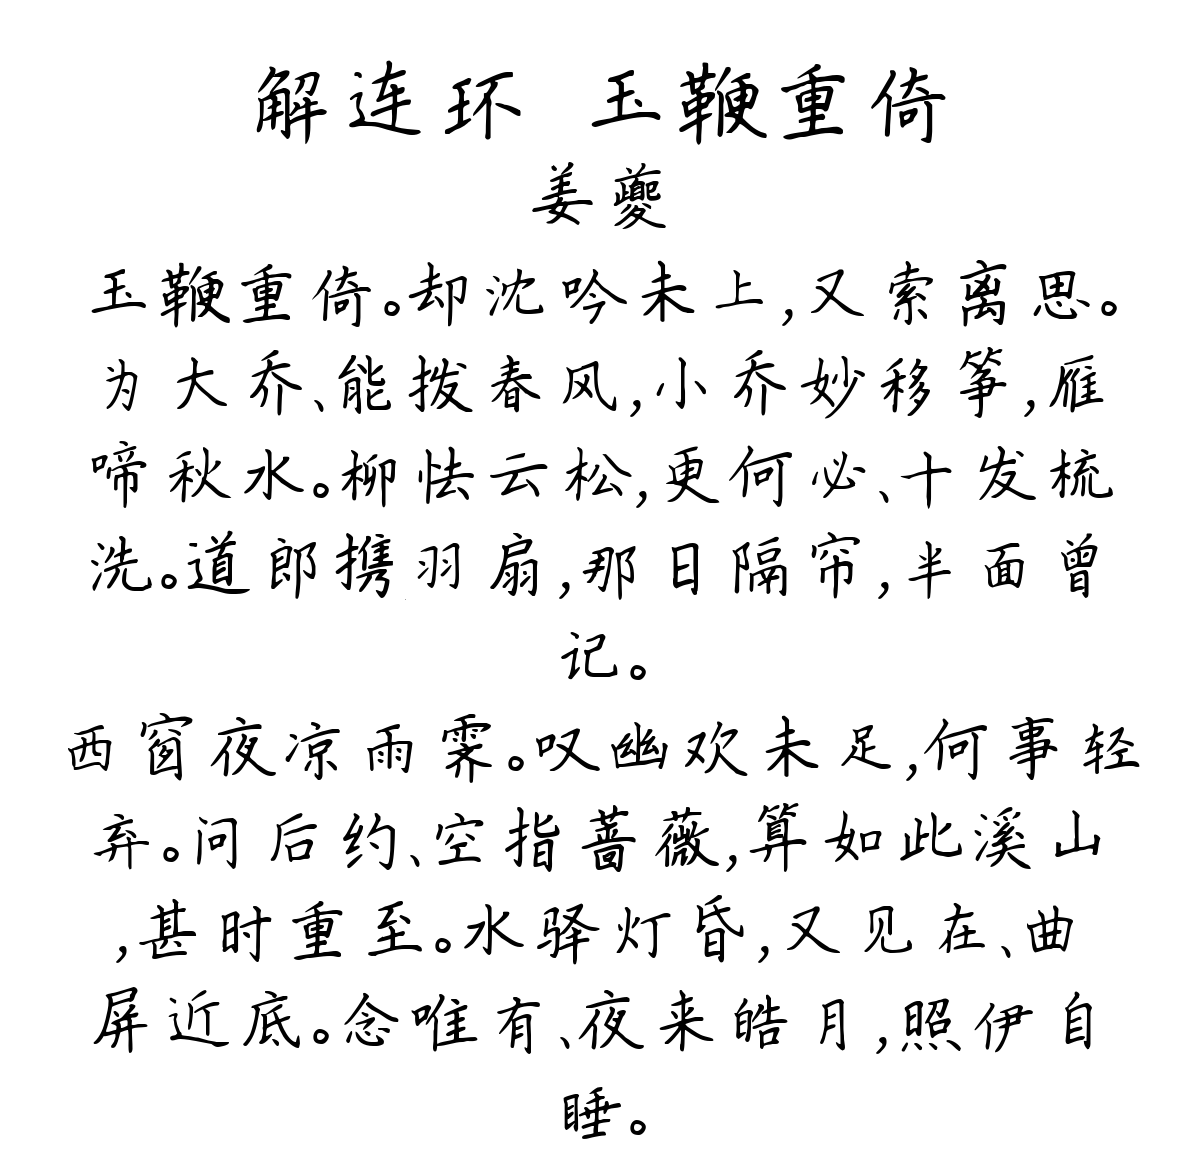 解连环 玉鞭重倚
姜夔
玉鞭重倚。却沈吟未上,又索离思。
为大乔、能拨春风,小乔妙移筝,雁
啼秋水。柳怯云松,更何必、十发梳
洗。道郎携羽扇,那日隔帘,半面曾
记。
西窗夜凉雨霁。叹幽欢未足,何事轻
弃。问后约、空指蔷薇,算如此溪山
,甚时重至。水驿灯昏,又见在、曲
屏近底。念唯有、夜来皓月,照伊自
睡。